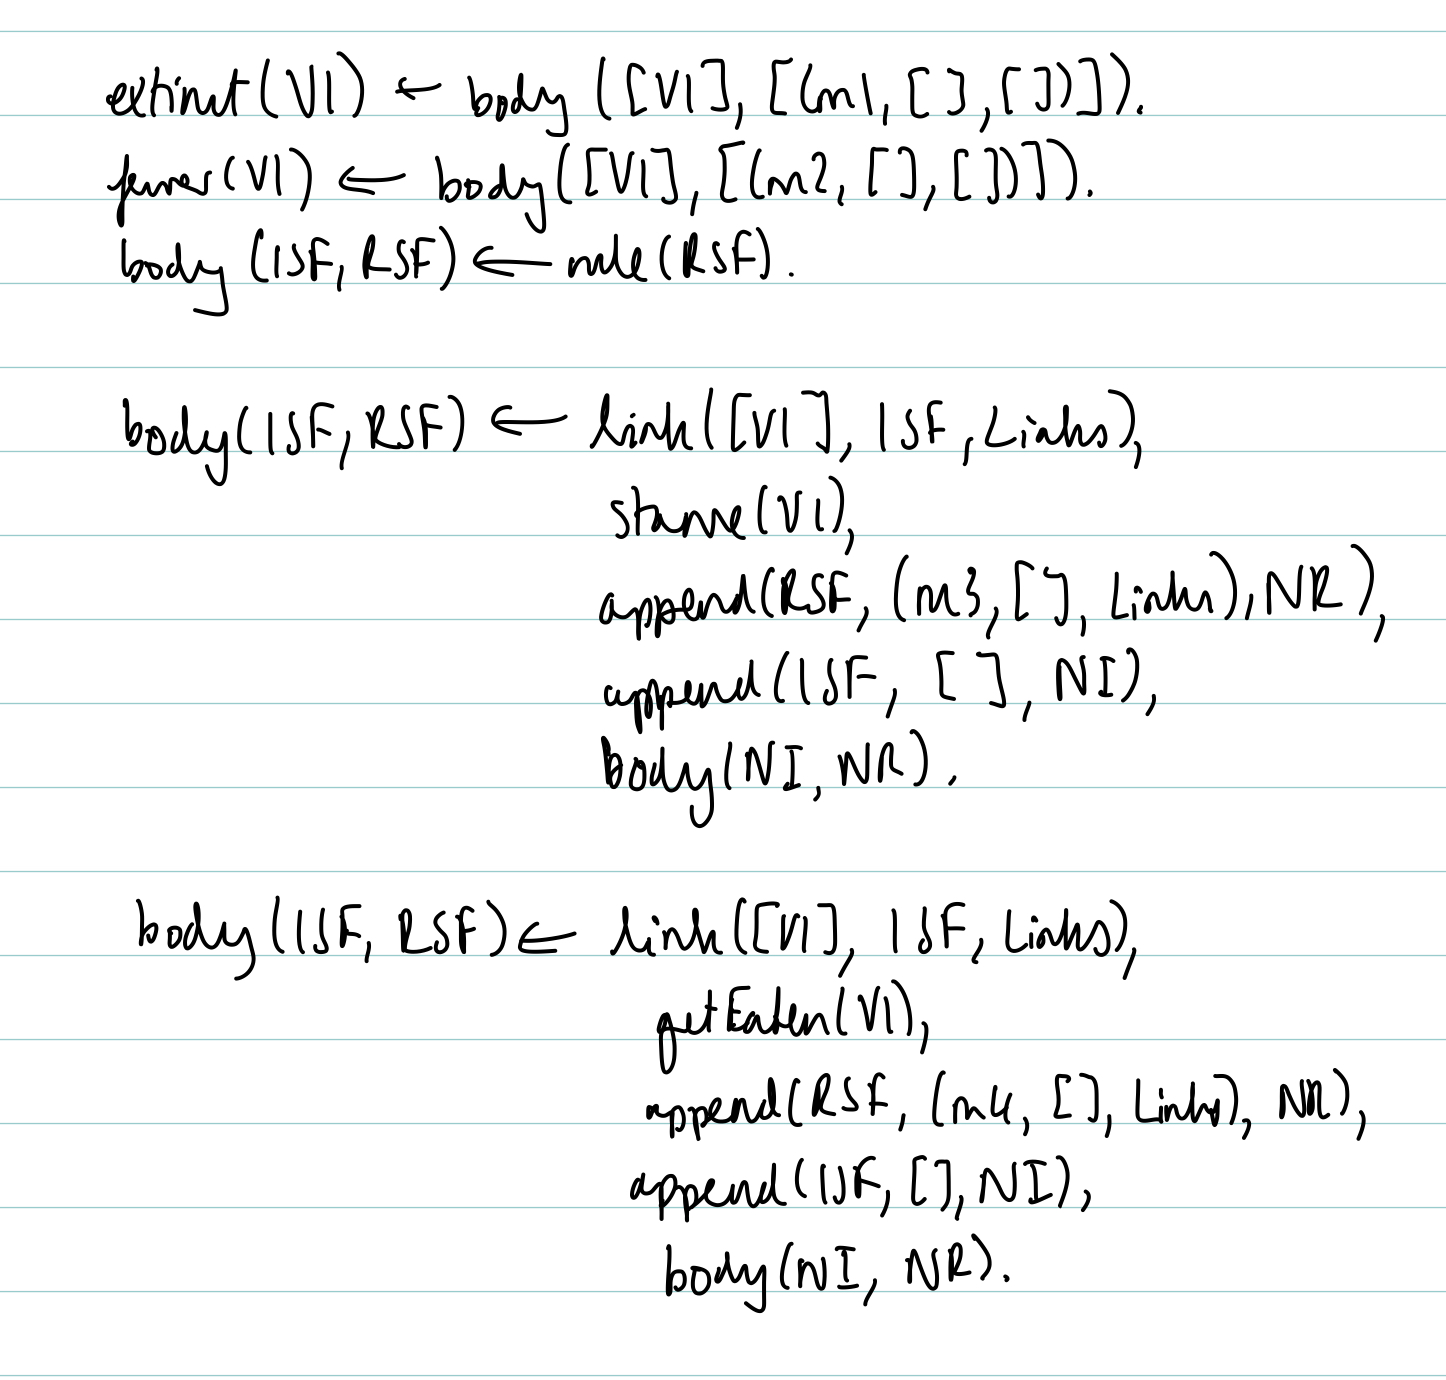 extinct(V1) ← body ([V1], [(m1, [ ], [ ])]).
fewer(V1) ← body([V1], [(m2, [ ], [ ])]).
body (ISF, RSF) ← rule(RSF).
body(ISF, RSF) ← link([V1], ISF, Links),
starve(V1),
append(RSF, (m3, [ ], Links), NR),
append(ISF, [ ], NI),
body(NI, NR).
body(ISF, RSF) ← link([V1], ISF, Links),
getEaten(V1),
append(RSF, (m4, [ ], Links), NR),
append(ISF, [ ], NI),
body(NI, NR).